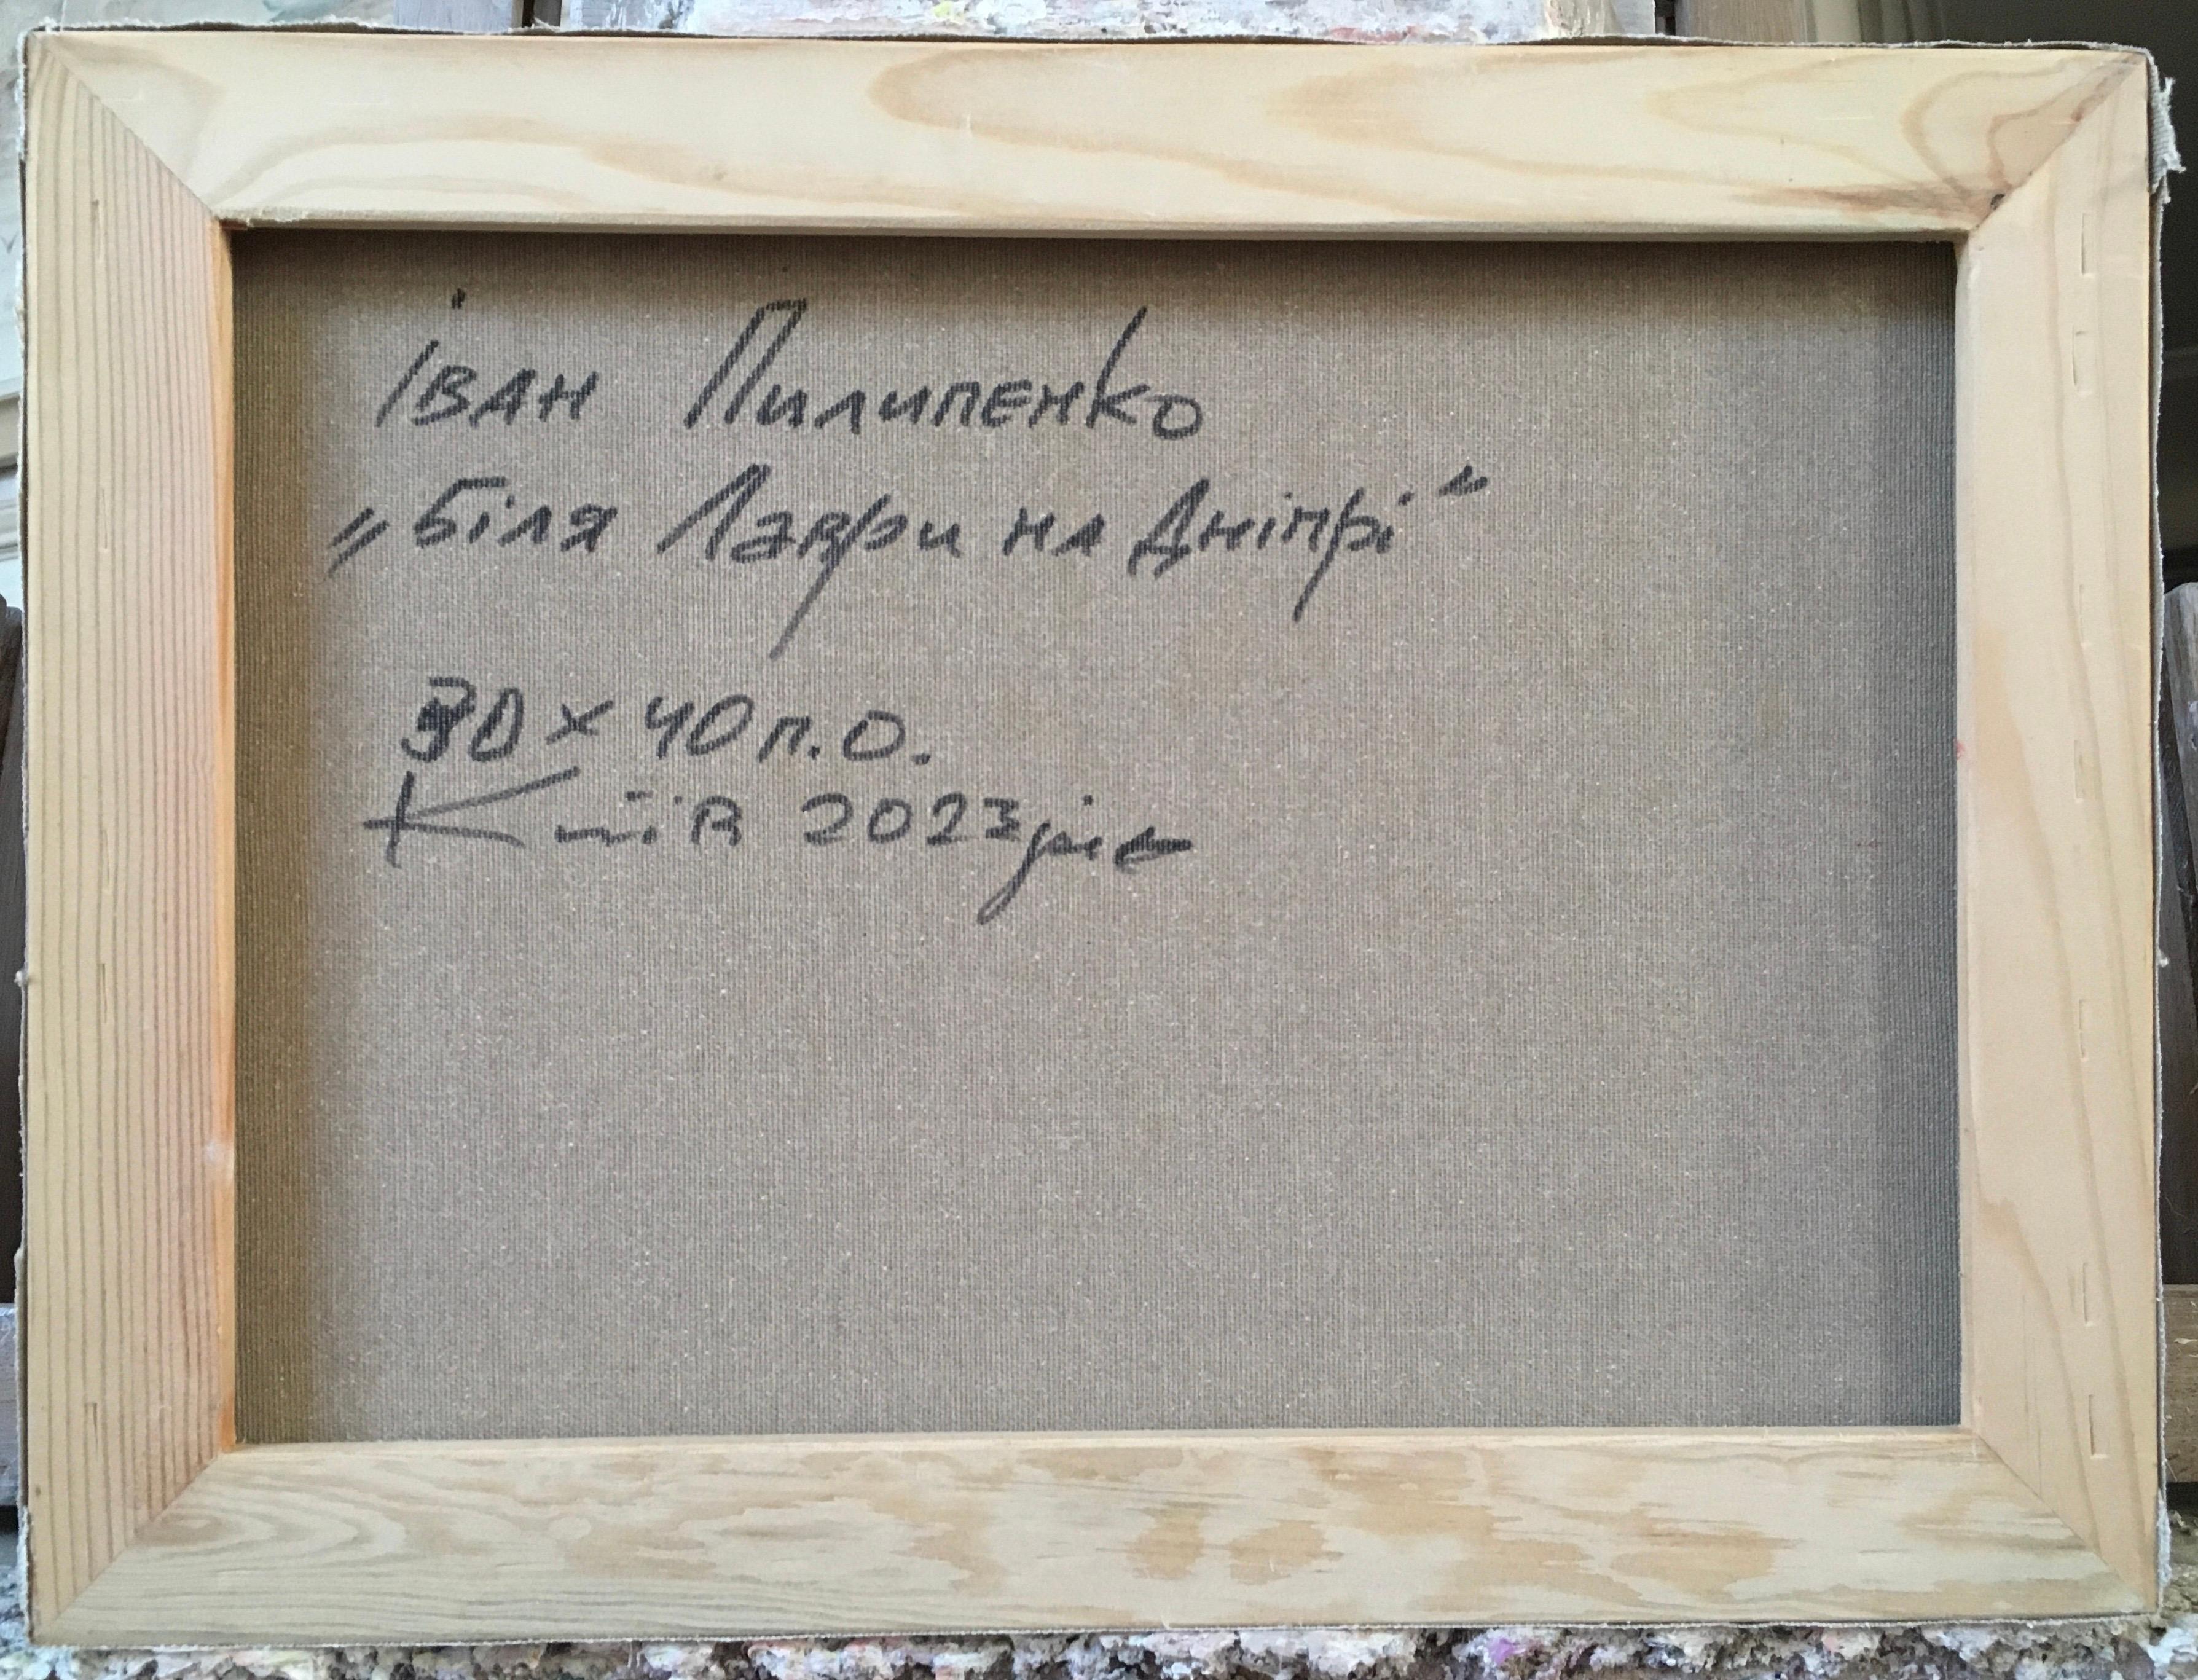 Іван Пилипенко
„Біля Лаври на Дніпрі“
30 x 40 п.О.
Київ 2023рік